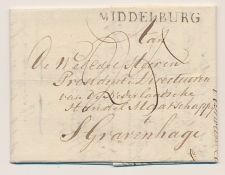 MIDDELBURG
Aan
De Wel Edele Heeren
President & Directeuren
van de Nederlandsche
Handel Maatschappy
te
S'Gravenhage